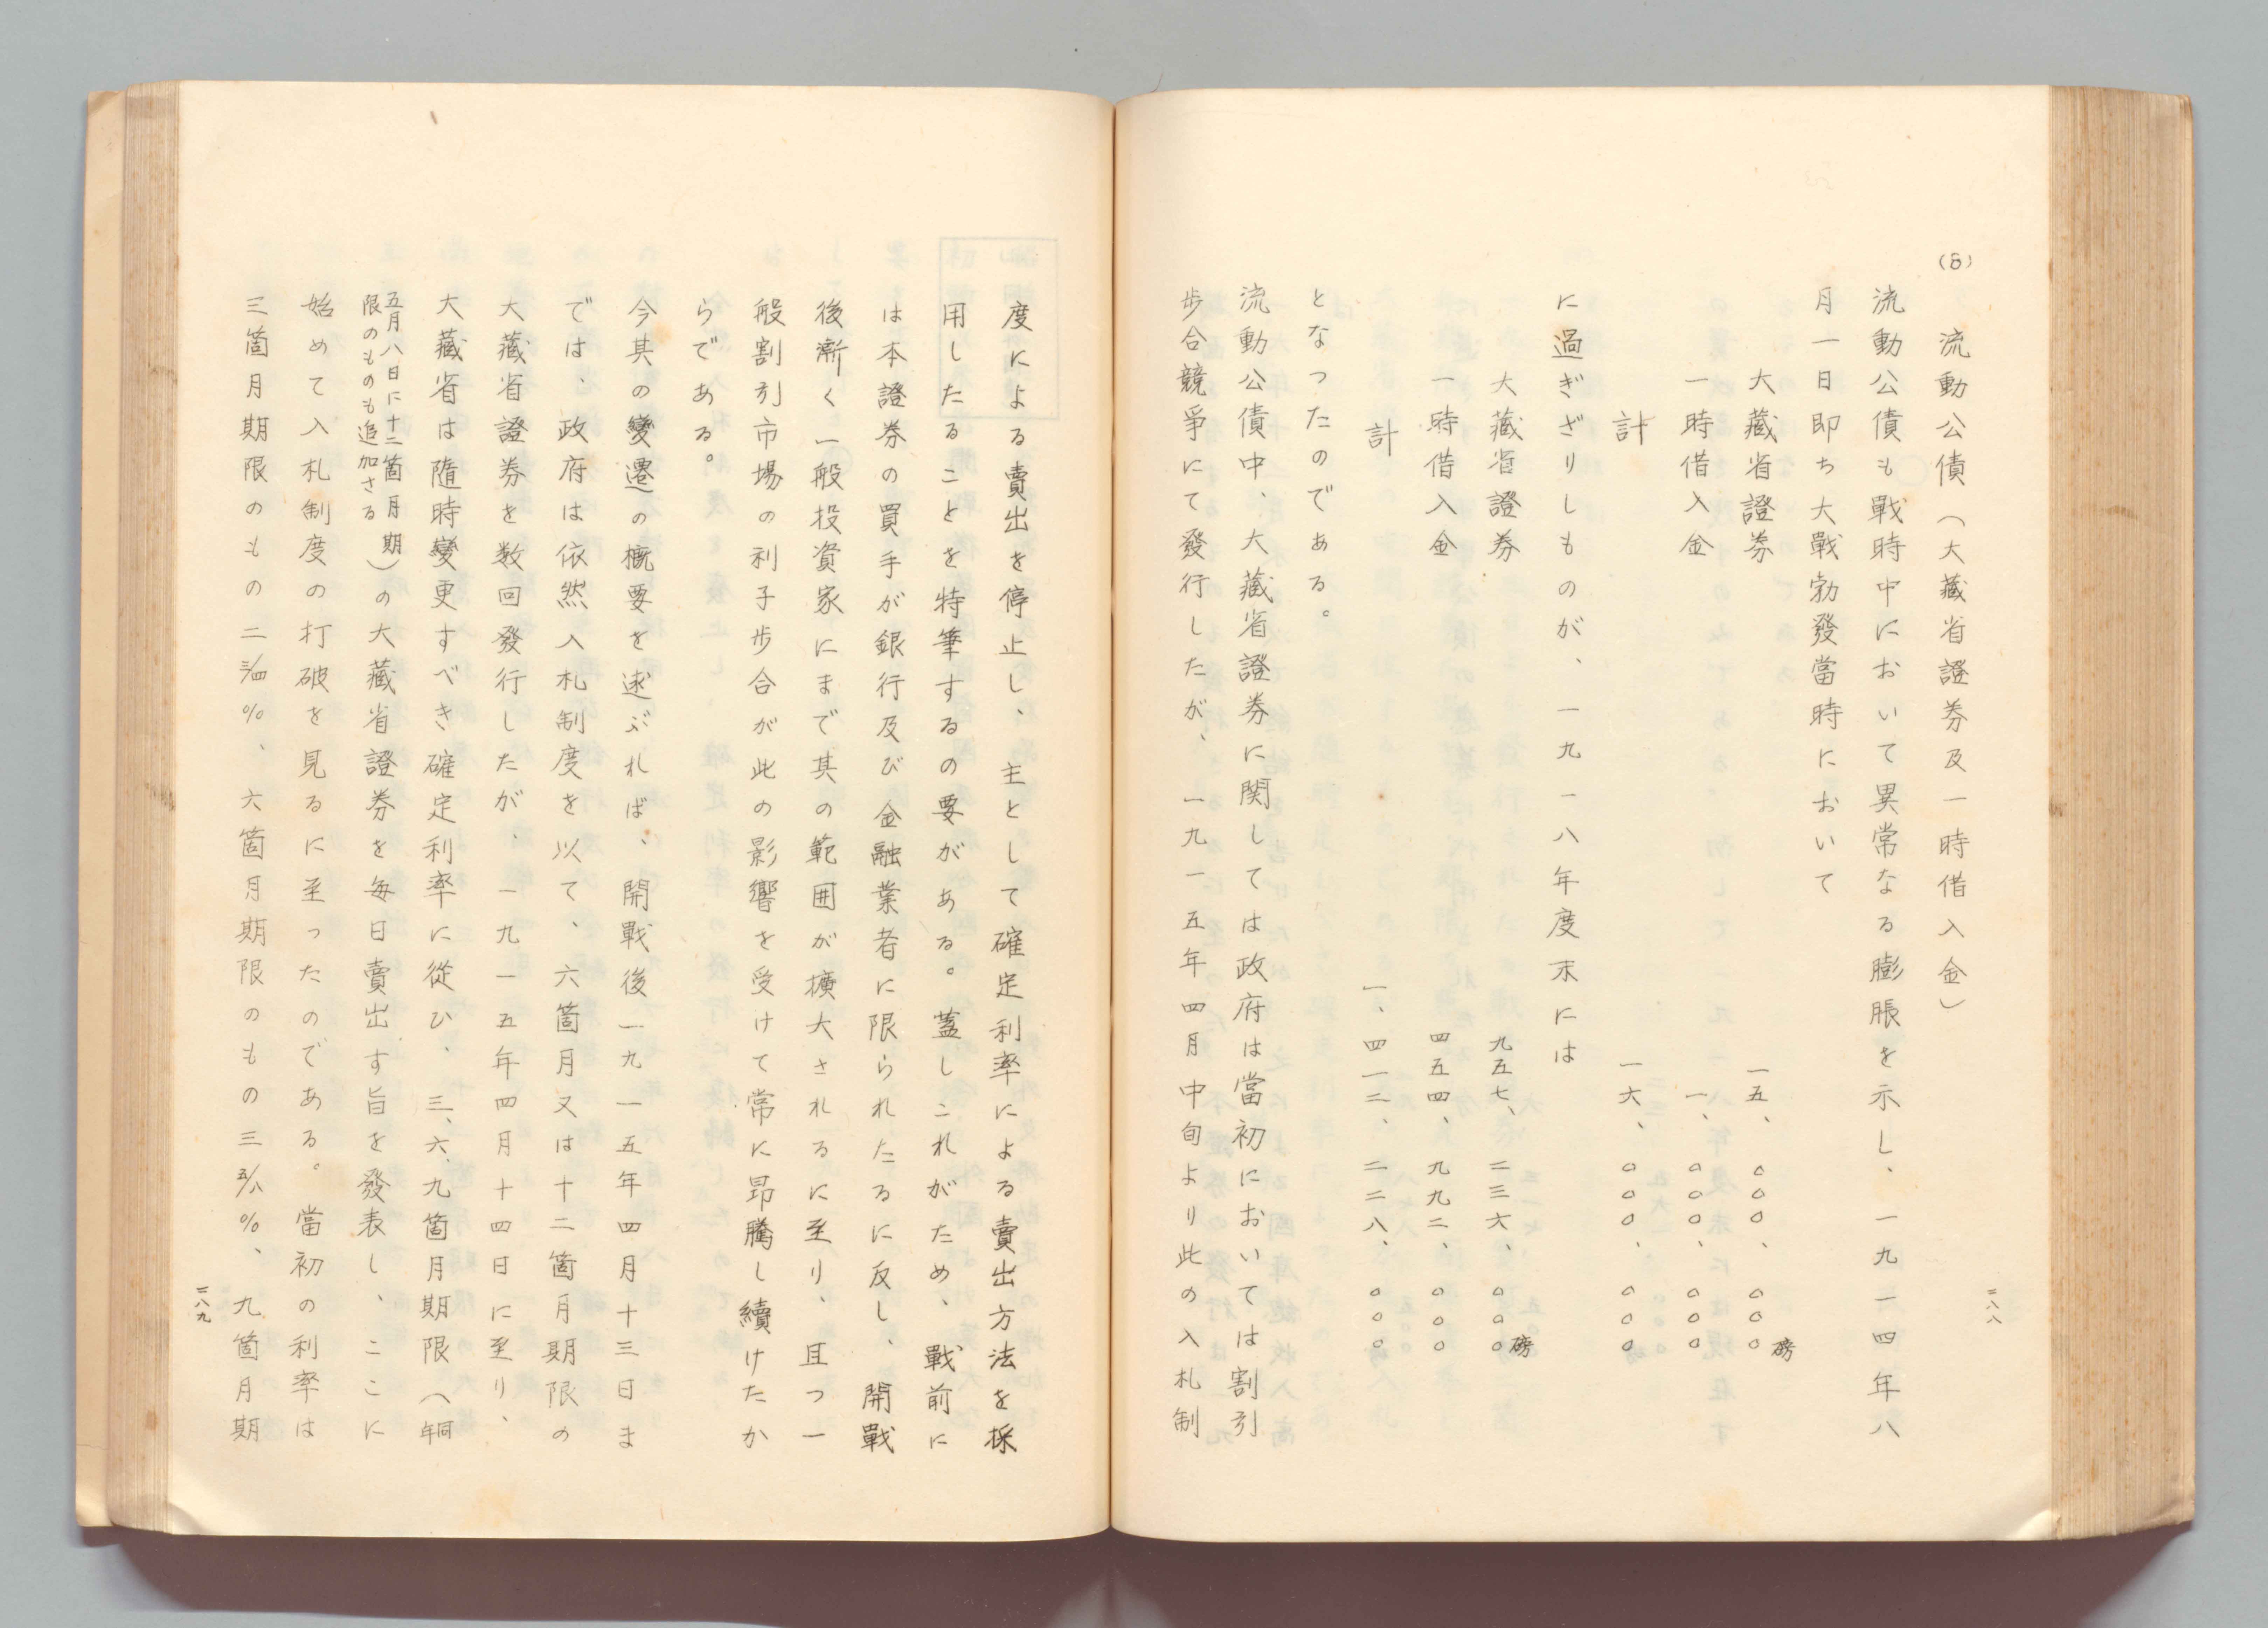 (8)　流動公債（大藏省證券及一時借入金）
流動公債も戰時中において異常なる膨脹を示し、一九一四年八
月一日即ち大戰勃發當時において
大藏省證券　一五、〇〇〇、〇〇〇磅
一時借入金　一、〇〇〇、〇〇〇
計　一六、〇〇〇、〇〇〇
に過ぎざりしものが、一九一八年度末には
大藏省證券　九五七、二三六、〇〇〇磅
一時借入金　四五四、九九二、〇〇〇
計　一、四一二、二二八、〇〇〇
となつたのである。
流動公債中、大藏省證券に関しては政府は當初においては割引
歩合競爭にて發行したが、一九一五年四月中旬より此の入札制
二八八
度による賣出を停止し、主として確定利率による賣出方法を採
用したることを特筆するの要がある。蓋しこれがため、戰前に
は本證券の買手が銀行及び金融業者に限られたるに反し、開戰
後漸く一般投資家にまで其の範囲が擴大されるに至り、且つ一
般割引市場の利子歩合が此の影響を受けて常に昂騰し續けたか
らである。
今其の變遷の概要を逑ぶれば、開戰後一九一五年四月十三日ま
では、政府は依然入札制度を以て、六箇月又は十二箇月期限の
大藏省證券を数回發行したが、一九一五年四月十四日に至り、
大藏省は隨時變更すべき確定利率に從ひ、三、六、九箇月期限（同年
五月八日に十二箇月期
限のものも追加さる）の大藏省證券を毎日賣出す旨を發表し、ここに
始めて入札制度の打破を見るに至ったのである。當初の利率は
三箇月期限のもの二三/四%、六箇月期限のもの三五/八%、九箇月期
二八九